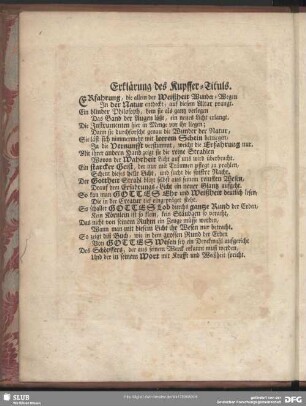 Erklärung des Kupffer-Tituls.
ERfahrung, die allein der Weißheit Wunder-Wegen
In der Natur entdeckt, auf diesem Altar prangt.
Ein blinder Philosoph, dem sie als gantz verlegen
Das Band der Augen löst, ein neues Licht erlangt.
Die Instrumenten hier in Menge vor ihr liegen;
Dann sie durchforscht genau die Wunder der Natur,
Sie läst sich nimmermehr mit leerem Schein betriegen.
In die Vernunfft versteinert, weicht die Erfahrung nur.
Mit ihrer andern Hand zeigt sie die reine Strahlen
Wovon der Wahrheit Licht auf uns wird überbracht.
Ein starcker Geist, der nur mit Träumen pflegt zu prahlen,
Scheut dieses helle Licht, und sucht die finstre Nacht.
Der Gottheit Strahl blitzt selbst aus seinem dunklen Wesen,
Drauf dem Erfahrungs-Licht ein neuer Glantz zugeht.
So kan man GOTTES Ehr und Weißheit deutlich lesen,
Die in der Creatur tief eingepräget steht.
So schallet GOTTES Lob durchs gantze Rund der Erden,
Kein Körnlein ist so klein, kein Stäublein so veracht,
Das nicht von seinem Ruhm ein Zeuge müste werden,
Wann man mit diesem Licht ihr Wesen nur betracht.
So zeigt diß Buch, wie in dem grossen Rund der Erden
Von GOTTES Wesen sey ein Denckmahl aufgericht
Des Schöpffers, der aus seinem Werck erkannt muß werden,
Und der in seinem Wort mit Krafft und Weißheit spricht.
SLUB
Wir führen Wissen.
gefördert von der
DFG